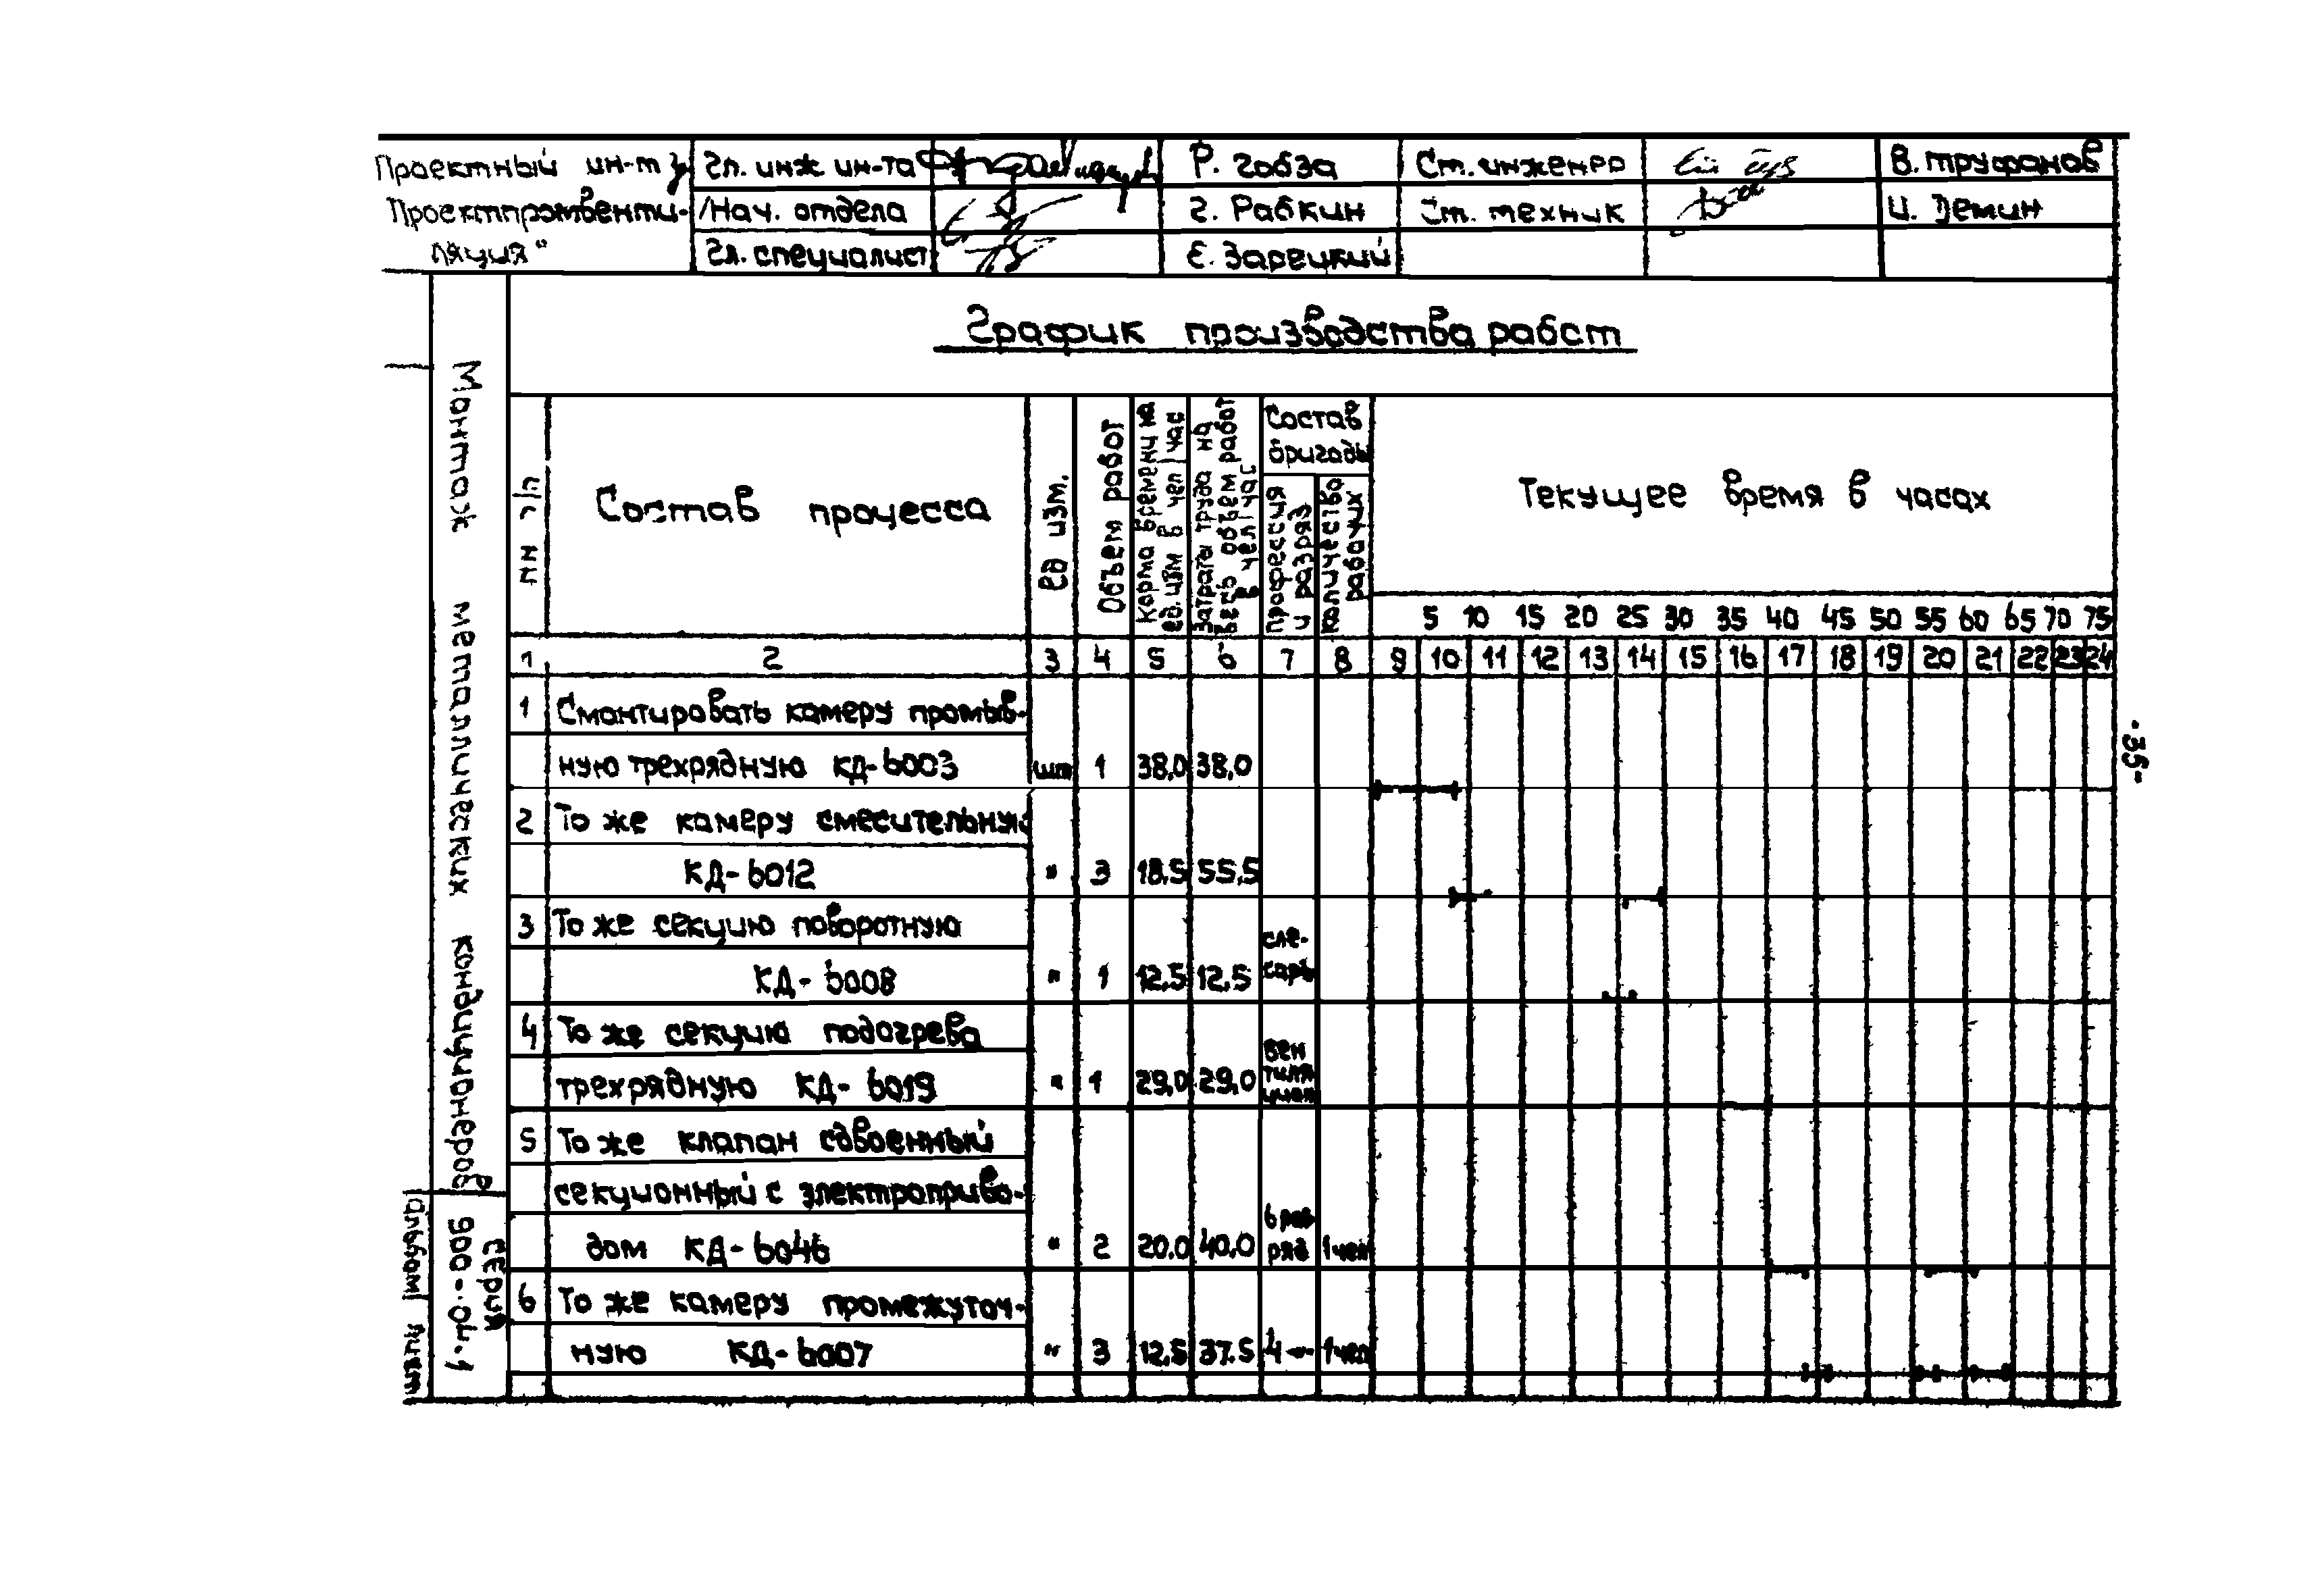 Проектный ин-т
Проектпромвенти-
ляция"
Гл. инж ин-та
Р. Гобза
Ст. инженер
В. Труфанов
Нач. отдела
Г. Рабкин
Ст. техник
И. Демин
Гл. специалист
Е. Зарецкий
График производства работ
Монтаж металлических кондиционеров
Серия
900-04.1
Альбом Лист
-35-
NN п/п
Состав процесса
ед изм.
Объем работ
Норма времени на
ед. изм в чел/час
Затраты труда на
весь объем работ
в чел/час
Состав
бригады
профессия
и разряд
количество
рабочих
Текущее время в часах
5 10 15 20 25 30 35 40 45 50 55 60 65 70 75
1 2 3 4 5 6 7 8 9 10 11 12 13 14 15 16 17 18 19 20 21 22 23 24
1 Смонтировать камеру промыв-
ную трехрядную КД-6003 шт 1 38,0 38,0
2 То же камеру смесительную
КД-6012 " 3 18,5 55,5
3 То же секцию поворотную
КД-6008 " 1 12,5 12,5
сле-
сарь
4 То же секцию подогрева
трехрядную КД-6019 " 1 29,0 29,0
вен
тиля
5 То же клапан сдвоенный
секционный с электроприво-
дом КД-6046 " 2 20.0 40,0
ряд 1чел
6 То же камеру промежуточ-
ную КД-6007 " 3 12,5 37.5 4 -"- 1чел